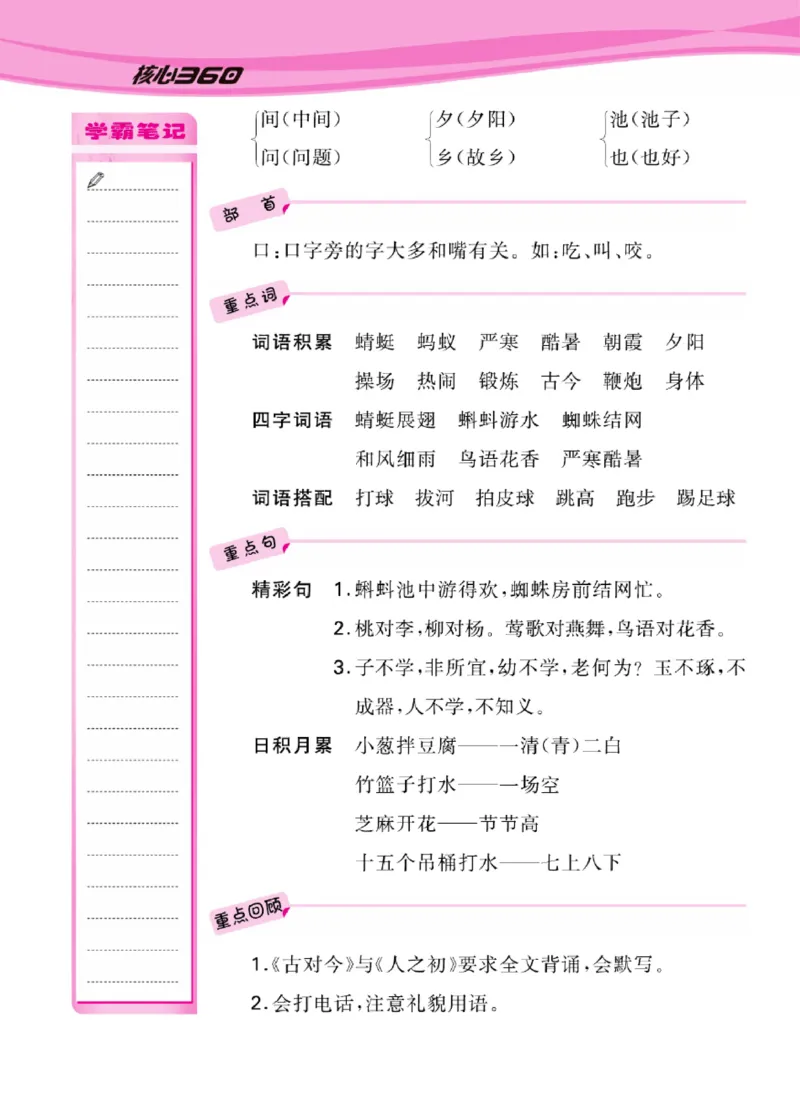 核心360
学霸笔记
间(中间) 夕(夕阳) 池(池子)
问(问题) 乡(故乡) 也(也好)
部 首
口:口字旁的字大多和嘴有关。如:吃、叫、咬。
重点词
词语积累 蜻蜓 蚂蚁 严寒 酷暑 朝霞 夕阳
操场 热闹 锻炼 古今 鞭炮 身体
四字词语 蜻蜓展翅 蝌蚪游水 蜘蛛结网
和风细雨 鸟语花香 严寒酷暑
词语搭配 打球 拔河 拍皮球 跳高 跑步 踢足球
重点句
精彩句 1.蝌蚪池中游得欢,蜘蛛房前结网忙。
2.桃对李,柳对杨。莺歌对燕舞,鸟语对花香。
3.子不学,非所宜,幼不学,老何为?玉不琢,不
成器,人不学,不知义。
日积月累 小葱拌豆腐——一清(青)二白
竹篮子打水——一场空
芝麻开花——节节高
十五个吊桶打水——七上八下
重点回顾
1.《古对今》与《人之初》要求全文背诵,会默写。
2.会打电话,注意礼貌用语。